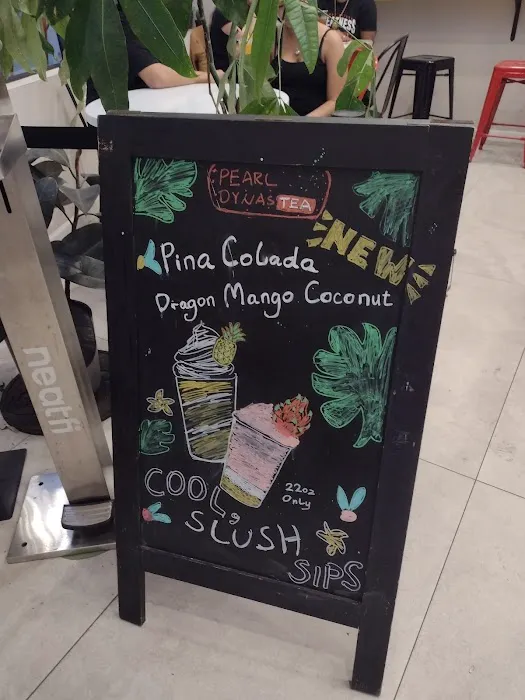 PEARL
DYNASTEA
NEW
Pina Colada
Dragon Mango Coconut
22oz
Only
COOL,
SLUSH
SIPS
neatfi